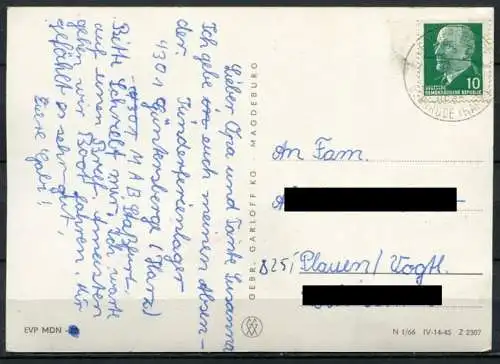 Lieber Opa und Tante Susanna
Ich gebe euch meinen Absen-
der. Kinderferienlager
4301 Güntersberge (Harz)
4301 MAB
Bitte schreibt mir, ich warte
auf einen Brief. Am ersten
gehn wir Boot fahren. Mir
gefählt es sehr gut.
Eure
GEBR. GARLOFF KG. MAGDEBURG
EVP MDN
DEUTSCHE
DEMOKRATISCHE REPUBLIK
10
An Fam.
825, Plauen/Vogtl.
N 1/66 IV-14-45 Z 2307